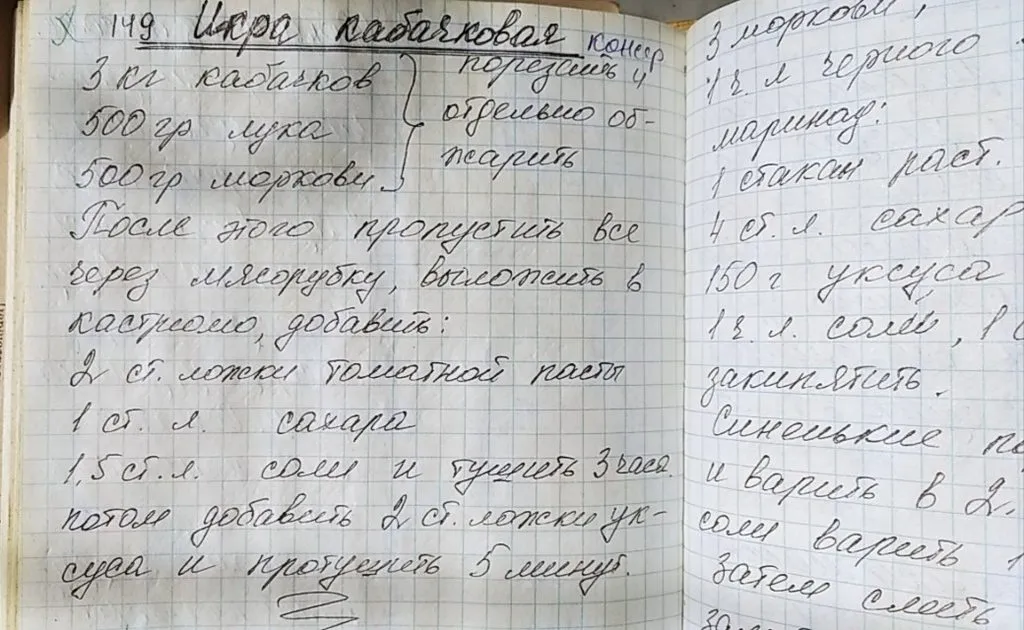 149 Икра кабачковая консер
3 кг кабачков
500 гр лука
500 гр моркови
порезать и
отдельно об-
жарить
После этого пропустить все
через мясорубку, выложить в
кастрюлю, добавить:
2 ст. ложки томатной пасты
1 ст. л. сахара
1,5 ст. л. соли и тушить 3 часа.
потом добавить 2 ст. ложки ук-
суса и протушить 5 минут.
3 моркови,
1 ч. л черного
маринад:
1 стакан раст.
4 ст. л. сахар
150 г уксуса
1 ч. л. соли, 1
закипятить.
Синенькие
и варить в 2.
соли варить 1
Затем слить